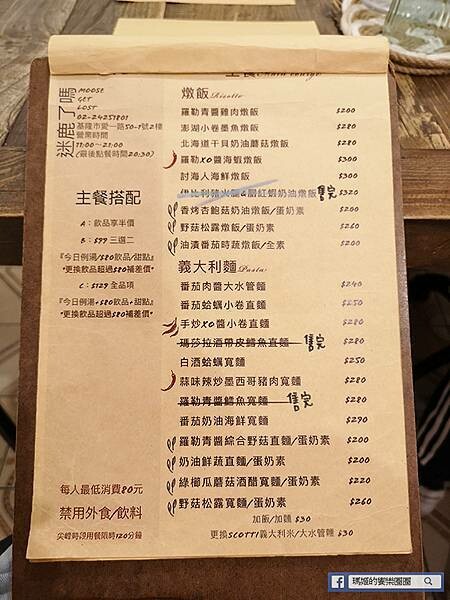 迷鹿了嗎
MOOSE
GET
LOST
02-24251801
基隆市愛一路50-1號2樓
營業時間
11:00~21:00
(最後點餐時間20:30)
主餐搭配
A:飲品享半價
B:$99 三選二
『今日例湯/$80飲品/甜點』
*更換飲品超過$80補差價*
C:$129 全品項
『今日例湯+$80飲品+甜點』
*更換飲品超過$80補差價*
每人最低消費80元
禁用外食/飲料
尖峰時段用餐限時120分鐘
主食 Main course
燉飯 Risotto
羅勒青醬雞肉燉飯 $200
澎湖小卷墨魚燉飯 $280
北海道干貝奶油蘑菇燉飯 $280
羅勒XO醬海蝦燉飯 $300
討海人海鮮燉飯 $300
伊比利豬火腿&胭紅蝦奶油燉飯 售完 $320
香烤杏鮑菇奶油燉飯/蛋奶素 $200
野菇松露燉飯/蛋奶素 $260
油漬番茄時蔬燉飯/全素 $200
義大利麵 Pasta
番茄肉醬大水管麵 $240
番茄蛤蠣小卷直麵 $250
手炒XO醬小卷直麵 $280
瑪莎拉酒帶皮鱈魚直麵 售完 $280
白酒蛤蠣寬麵 $250
蒜味辣炒墨西哥豬肉寬麵 $280
羅勒青醬鱈魚寬麵 售完 $280
番茄奶油海鮮寬麵 $290
羅勒青醬綜合野菇直麵/蛋奶素 $200
奶油鮮蔬直麵/蛋奶素 $200
綠櫛瓜蘑菇酒醋寬麵/蛋奶素 $220
野菇松露寬麵/蛋奶素 $260
加飯/加麵 $30
更換SCOTTI義大利米/大水管麵 $30
瑪姬的饗樂圈圈